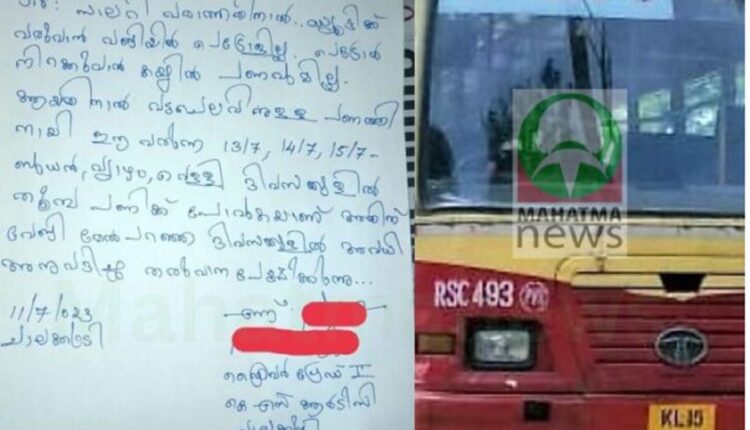 സാർ: സാലറി വരാത്തതിനാൽ.. ഡ്യൂട്ടിക്ക്
വരുവാൻ വണ്ടിയിൽ പെട്രോളില്ല. പെട്രോൾ
നിറക്കുവാൻ കയ്യിൽ പണവുമില്ല.
ആയതിനാൽ വട്ടചെലവിനുള്ള പണത്തി
നായി ഈ വരുന്ന 13/7, 14/7, 15/7-
ബുധൻ, വ്യാഴം, വെള്ളി ദിവസങ്ങളിൽ
തൂമ്പ പണിക്ക് പോവുകയാണ് അതിന്
വേണ്ടി മേൽപറഞ്ഞ ദിവസങ്ങളിൽ അവധി
അനുവദിച്ചു തരുവാനപേക്ഷിക്കുന്നു...
11/7/023
ചാലക്കുടി
എന്ന്
ഡ്രൈവർ ഗ്രേഡ് II
കെ എസ് ആർടിസി
MAHATMA
news
RSC 493
TATA
KL 15